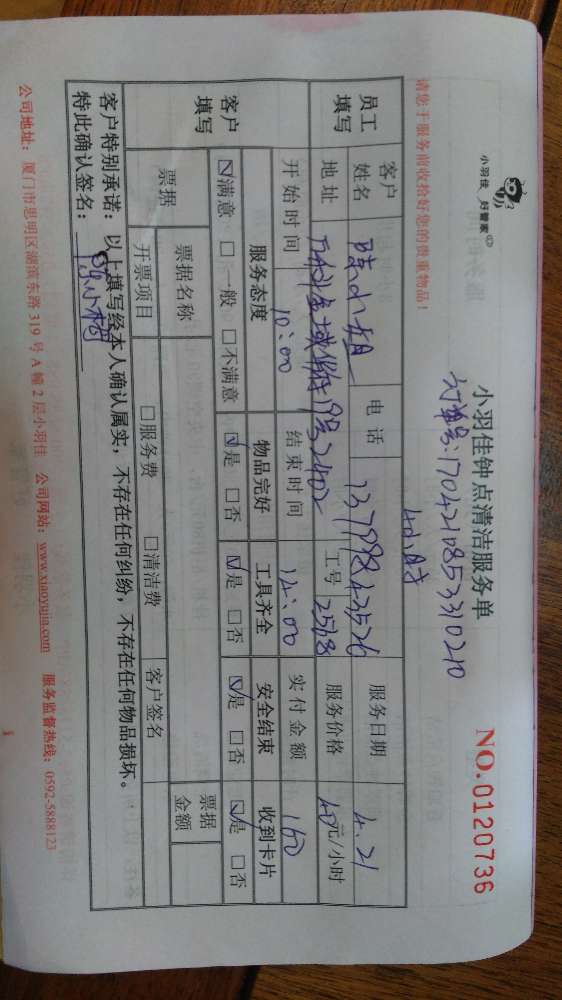 小羽佳 好管家
小羽佳钟点清洁服务单
NO.0120736
订单号:1704210853310210
请您于服务前收拾好您的贵重物品!
4小时
员工填写 客户姓名 陈小姐 电话 13799243526 服务日期 4.21
地址 万科金域华府19号2402 工号 2518 服务价格 40元/小时
开始时间 10:00 结束时间 14:00 实付金额 160
客户填写 服务态度 物品完好 工具齐全 安全结束 收到卡片
☑满意 □一般 □不满意 ☑是 □否 ☑是 □否 ☑是 □否 ☑是 □否
票据 票据名称 客户签名 票据金额
开票项目 □服务费 □清洁费
客户特别承诺:以上填写经本人确认属实,不存在任何纠纷,不存在任何物品损坏。
特此确认签名:
公司地址:厦门市思明区湖滨东路 319 号 A 幢 2 层小羽佳 公司网站:www.xiaoyujia.com 服务监督热线:0592-5888123